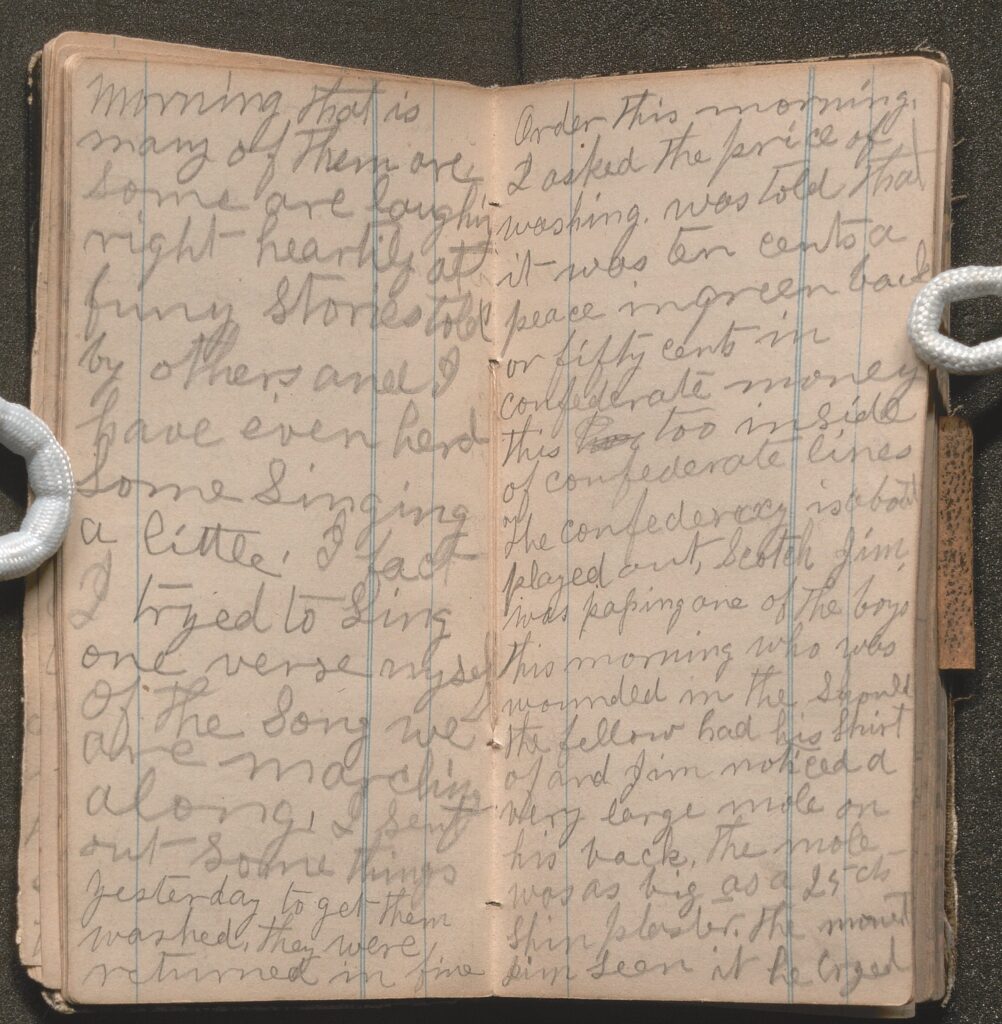 Morning, that is
many of them are
Some are laughing
right heartily at
funy Stories told
by others and I
have even herd
Some Singing
a little, I fact
I tryed to Sing
one verse myself
of the Song we
are marching
along, I sent
out Some things
yesterday to get them
washed, they were
returned in fine
Order this morning,
I asked the price of
washing. was told that
it was ten cents a
peace in green back
or fifty cents in
confederate money
this too inside
of confederate lines
The confederacy is about
played out, Scotch Jim,
was passing one of the boys
this morning who was
wounded in the Should
the fellow had his shirt
of and Jim noticed a
very large mole on
his back, The mole
was as big as a 25 ct
Shin plaster. The moment
Jim seen it he cryed